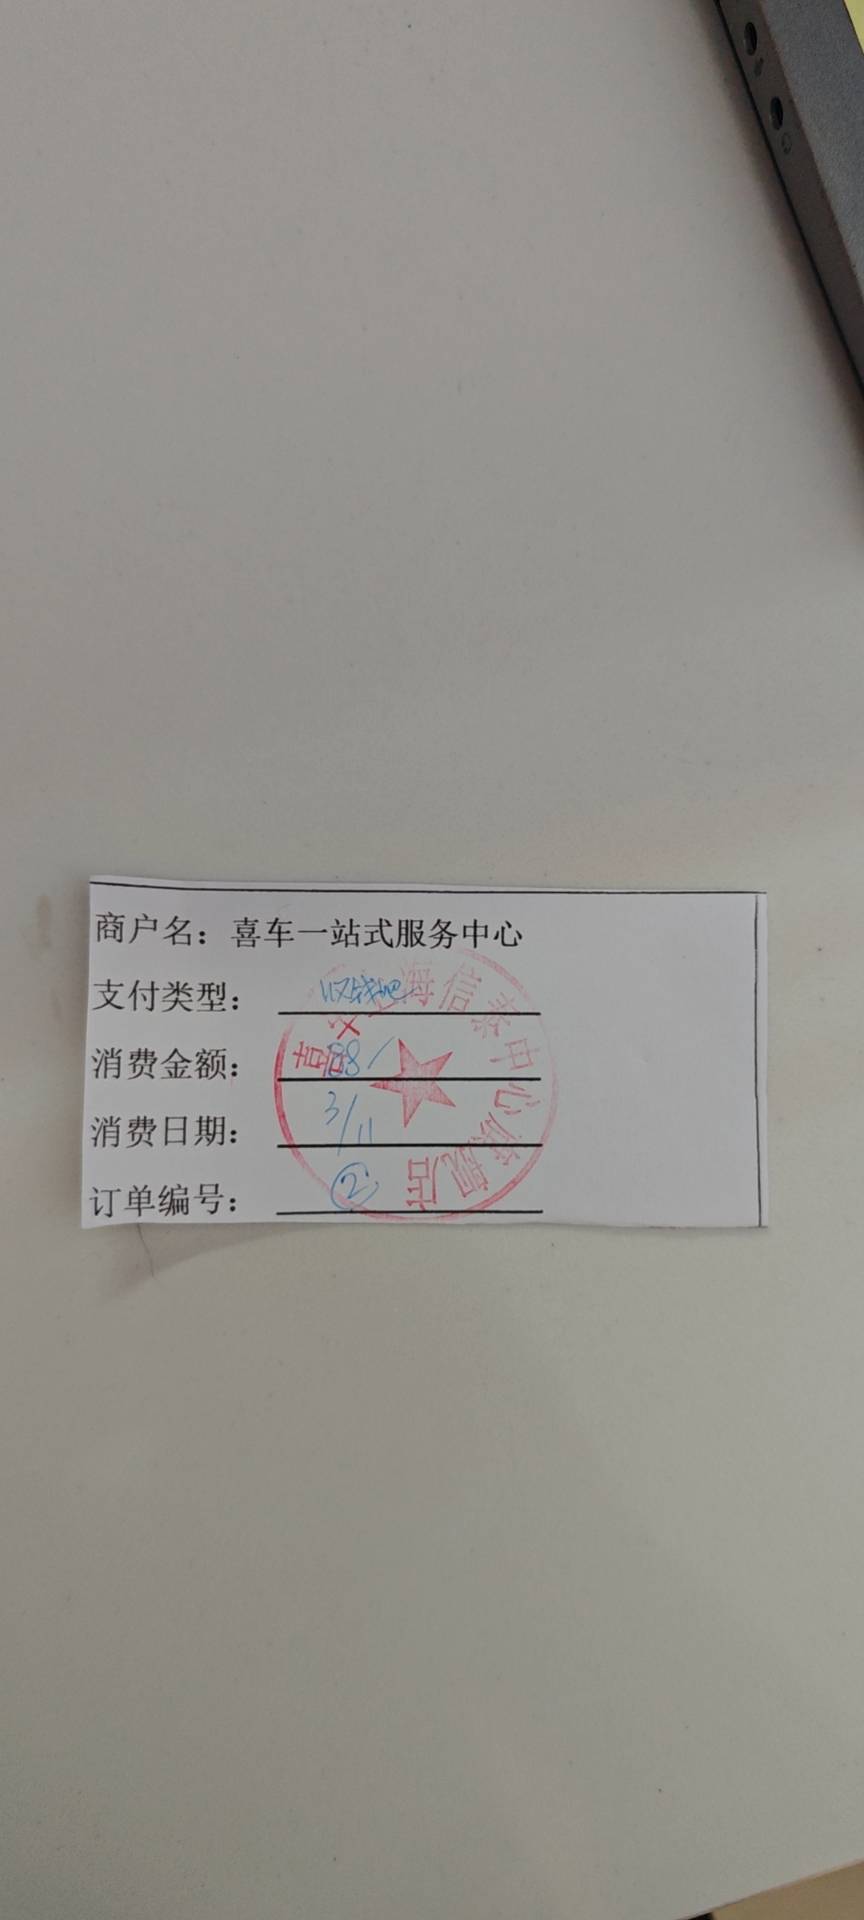 商户名：喜车一站式服务中心
支付类型：收钱吧
消费金额：88/
消费日期：3/11
订单编号：②
喜车上海信泰中心旗舰店